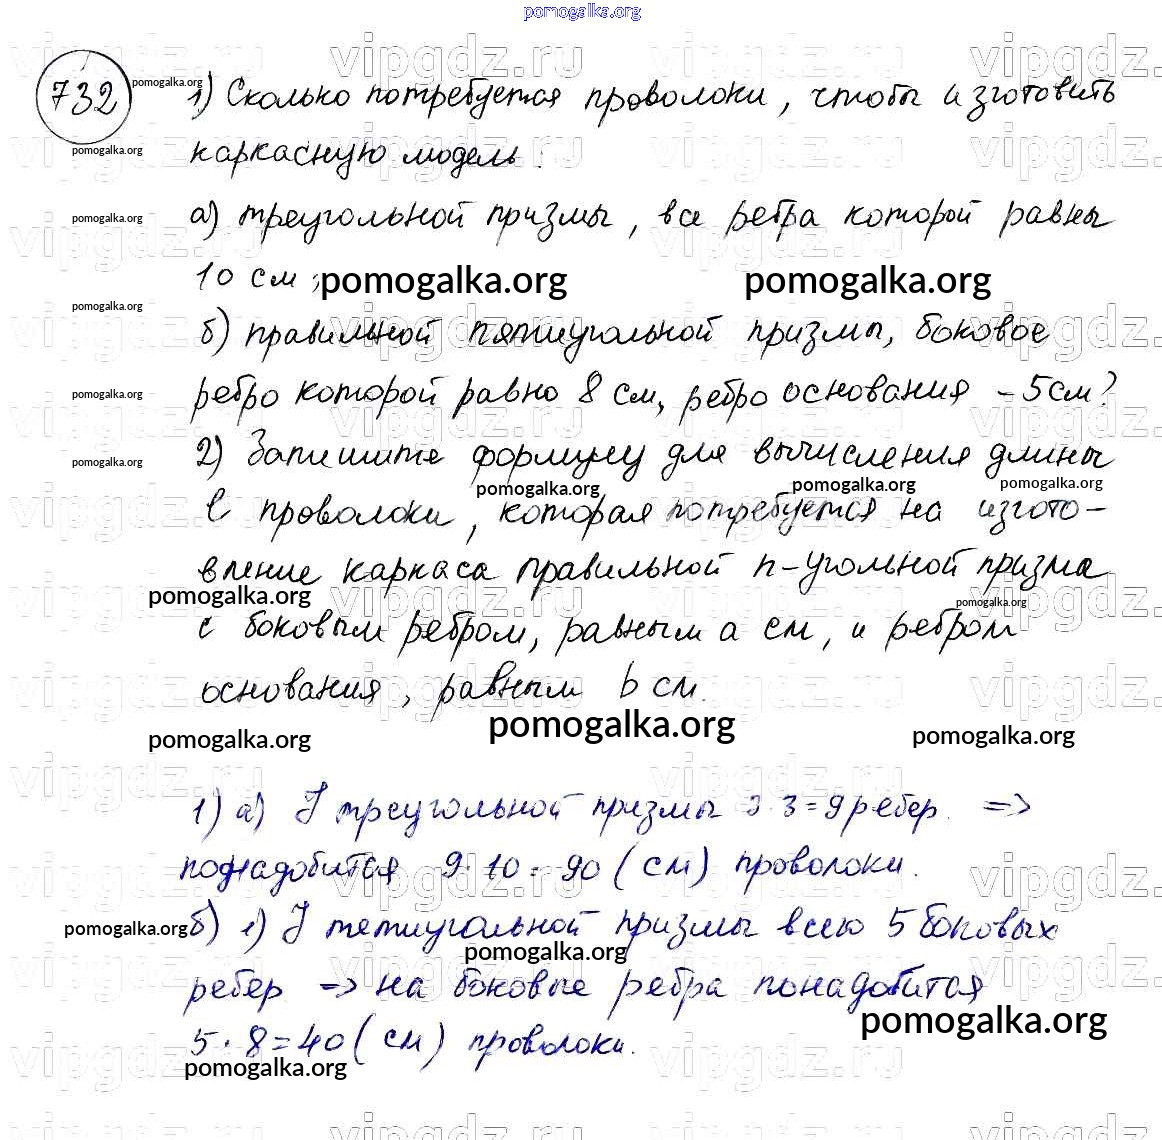 pomogalka.org
732 1) Сколько потребуется проволоки, чтобы изготовить
каркасную модель:
а) треугольной призмы, все ребра которой равны
10 см;
б) правильной пятиугольной призмы, боковое
ребро которой равно 8 см, ребро основания – 5 см?
2) Запишите формулу для вычисления длины
ℓ проволоки, которая потребуется на изгото-
вление каркаса правильной n-угольной призма
с боковым ребром, равным a см, и ребром
основания, равным b см.
1) а) У треугольной призмы 3·3=9 ребер. =>
понадобится 9·10=90 (см) проволоки.
б) 1) У пятиугольной призмы всего 5 боковых
ребер => на боковые ребра понадобится
5·8=40 (см) проволоки.